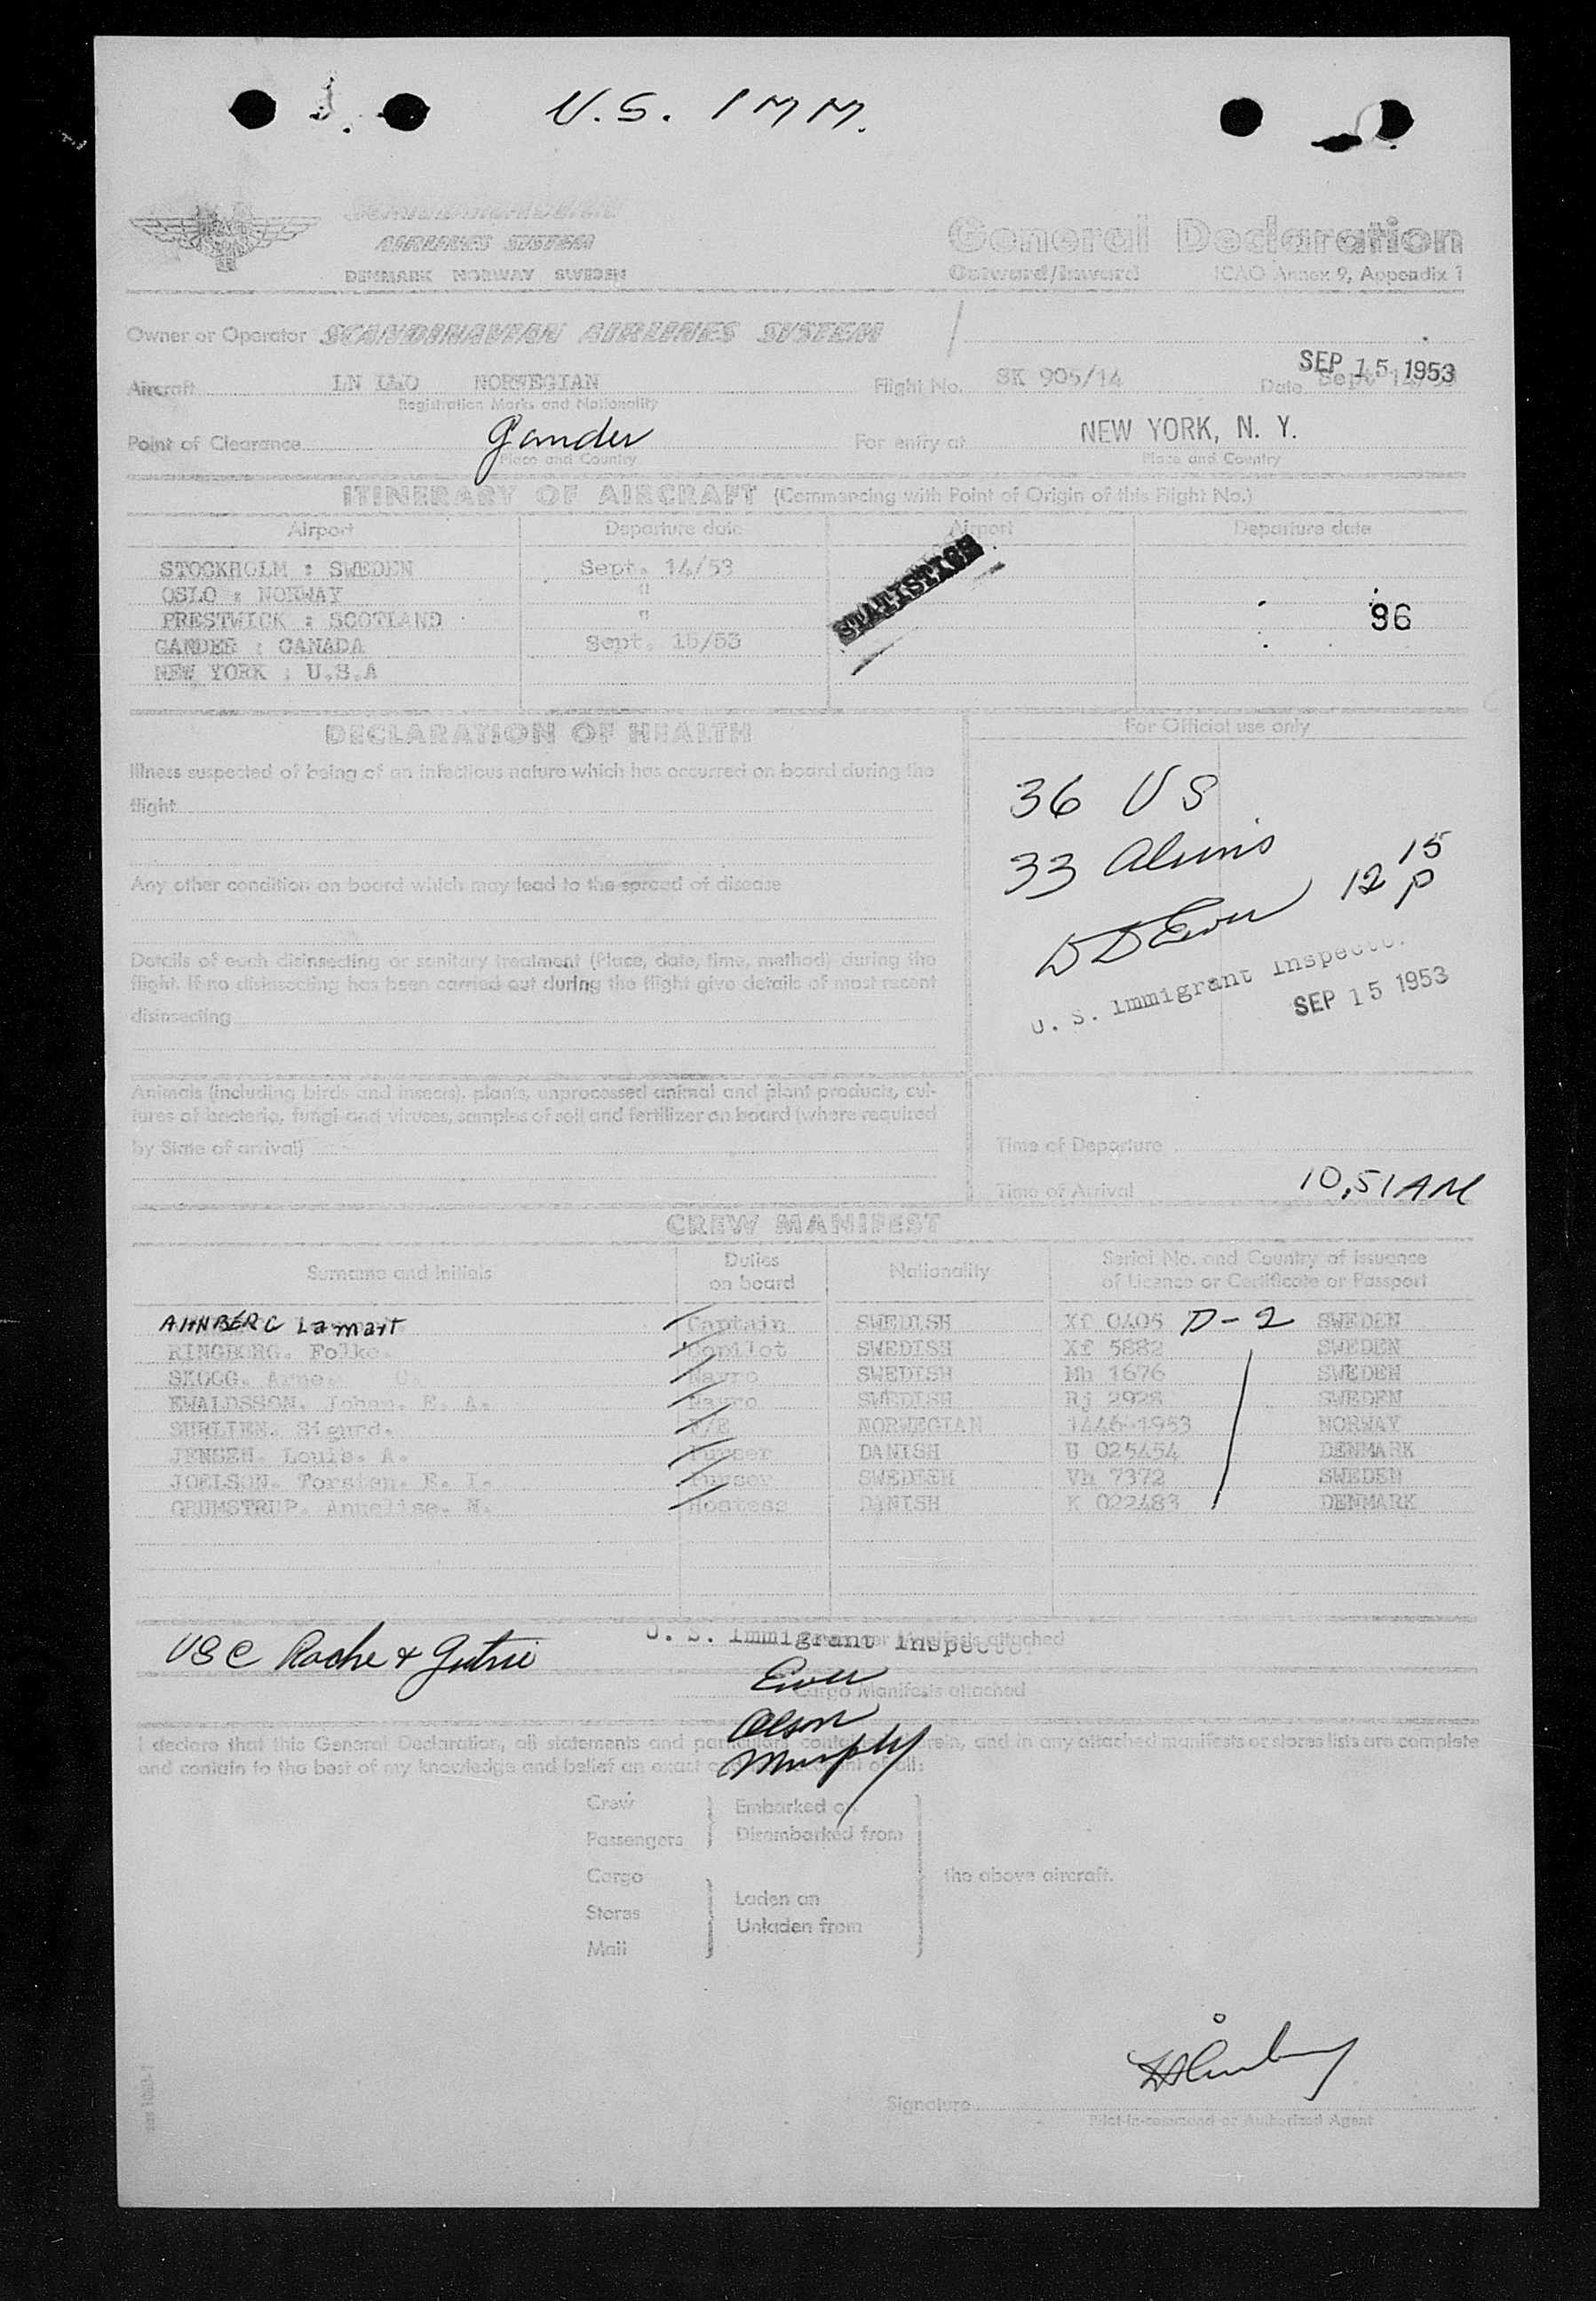 U.S. IMM.
SCANDINAVIAN
AIRLINES SYSTEM
DENMARK NORWAY SWEDEN
General Declaration
Outward/Inward ICAO Annex 9, Appendix 1
Owner or Operator SCANDINAVIAN AIRLINES SYSTEM
SEP 15 1953
Aircraft LN LMO NORWEGIAN Flight No. SK 905/14 Date Sept 14/53
Registration Marks and Nationality
Point of Clearance Gander For entry at NEW YORK, N. Y.
Place and Country Place and Country
ITINERARY OF AIRCRAFT (Commencing with Point of Origin of this Flight No.)
Airport Departure date Airport Departure date
STOCKHOLM : SWEDEN Sept. 14/53
OSLO : NORWAY "
PRESTWICK : SCOTLAND "
GANDER : CANADA Sept. 15/53
NEW YORK : U.S.A
STATISTICS
96
DECLARATION OF HEALTH
Illness suspected of being of an infectious nature which has occurred on board during the
flight
Any other condition on board which may lead to the spread of disease
Details of each disinsecting or sanitary treatment (Place, date, time, method) during the
flight. If no disinsecting has been carried out during the flight give details of most recent
disinsecting
Animals (including birds and insects), plants, unprocessed animal and plant products, cul-
tures of bacteria, fungi and viruses, samples of soil and fertilizer on board (where required
by State of arrival)
For Official use only
36 US
33 Aliens
DD Ewer 12 15 P
U. S. Immigrant Inspector
SEP 15 1953
Time of Departure
Time of Arrival 10,51AM
CREW MANIFEST
Surname and Initials Duties on board Nationality Serial No. and Country of Issuance of Licence or Certificate or Passport
AHNBERG Lamart Captain SWEDISH Xf 0405 D-2 SWEDEN
RINGBORG. Folke. Copilot SWEDISH Xf 5882 SWEDEN
SKOOG. Arne. Navro SWEDISH Mh 1676 SWEDEN
EWALDSSON. Johan. E. A. Navro SWEDISH Rj 2928 SWEDEN
SURLIEN. Sigurd. F/E NORWEGIAN 1446-1953 NORWAY
JENSEN. Louis. A. Purser DANISH U 025454 DENMARK
JOELSON. Torsten. E. I. Purser SWEDISH Vh 7372 SWEDEN
GRUMSTRUP. Annelise. M. Hostess DANISH K 022483 DENMARK
USC Roche + Gutrie
U. S. Immigrant Inspector
Manifests attached
Ewer
Cargo Manifests attached
Olson
Murphy
I declare that this General Declaration, all statements and particulars contained herein, and in any attached manifests or stores lists are complete
and contain to the best of my knowledge and belief an exact and true account of all:
Crew
Passengers
Embarked on
Disembarked from
Cargo
Stores
Mail
Laden on
Unladen from
the above aircraft.
Signature
Pilot-in-command or Authorized Agent